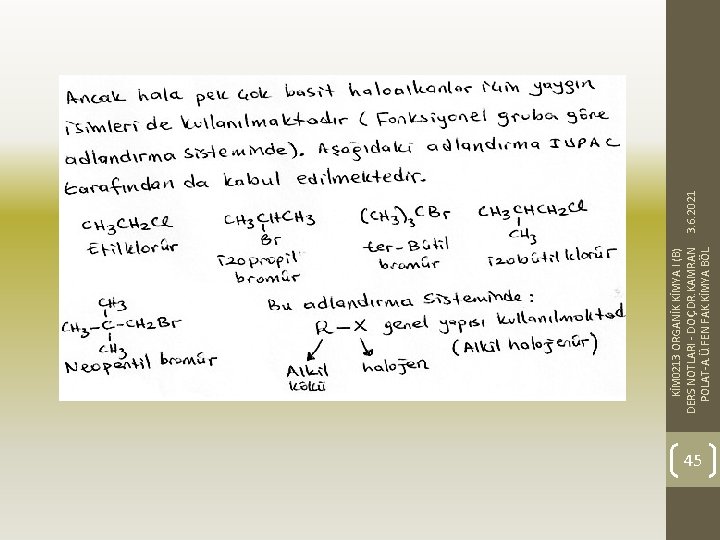 Ancak hala pek çok basit haloalkanlar için yaygın
isimleri de kullanılmaktadır (Fonksiyonel gruba göre
adlandırma sisteminde). Aşağıdaki adlandırma IUPAC
tarafından da kabul edilmektedir.
CH3CH2Cl
Etilklorür
CH3CHCH3
Br
İzopropil
bromür
(CH3)3CBr
ter-Bütil
bromür
CH3CHCH2Cl
CH3
İzobütil klorür
CH3
CH3-C-CH2Br
CH3
Neopentil bromür
Bu adlandırma sisteminde:
R-X genel yapısı kullanılmaktad
(Alkil halojenür)
Alkil
kökü
halojen
KİM0213 ORGANİK KİMYA I (B)
DERS NOTLARI - DOÇ.DR.KAMRAN
POLAT-A.Ü.FEN FAK.KİMYA BÖL
3.6.2021
45